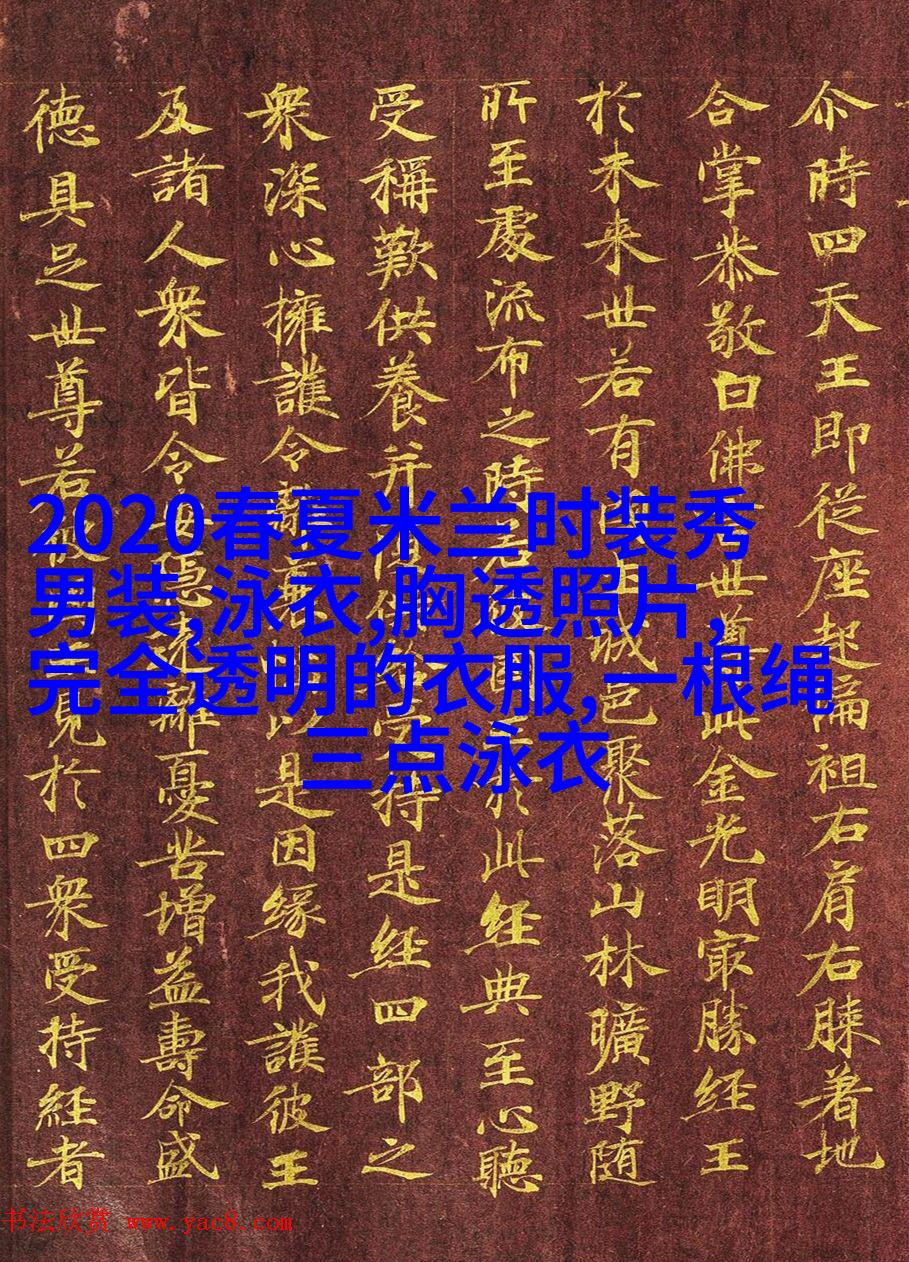 尒時四天王即従座起偏袒右肩右膝著地
合掌恭敬白佛世尊此金光明㝡勝経王
於未来世若有城邑聚落山林曠野随
所至處流布之時若於此経典至心聽
受稱歎供養并持是経四部之
衆深心擁護令離以是因緣我護彼王
及諸人衆皆令隱遠離憂苦增益壽命盛
徳具足世尊若彼見於四衆受持経者
2020春夏米兰时装秀
男装,泳衣,胸透照片,
完全透明的衣服,一根绳
三点泳衣
书法欣赏 www.yac8.com